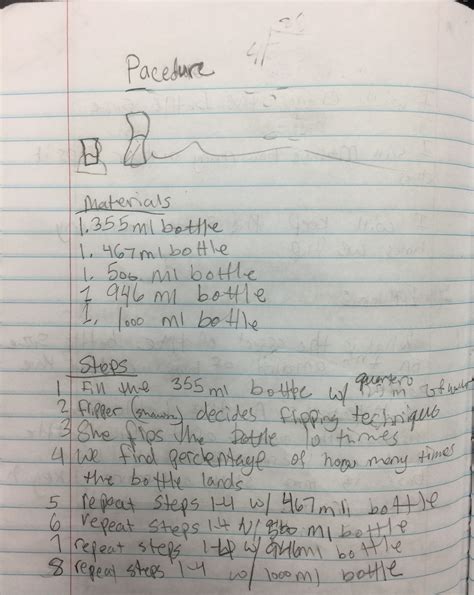 Pacedure
Materials
1. 355 ml bottle
1. 467 ml bottle
1. 500 ml bottle
1 946 ml bottle
1. 1000 ml bottle
Steps
1 Fill the 355 ml bottle w/ quarter of water
2 flipper decides flipping technique
3 She flips the bottle 10 times
4 we find percentage of how many times
the bottle lands
5 repeat steps 1-4 w/ 467 mili bottle
6 repeat steps 1-4 w/ 500 ml bottle
7 repeat steps 1-4 w/ 946 ml bottle
8 repeat steps 1-4 w/ 1000 ml bottle